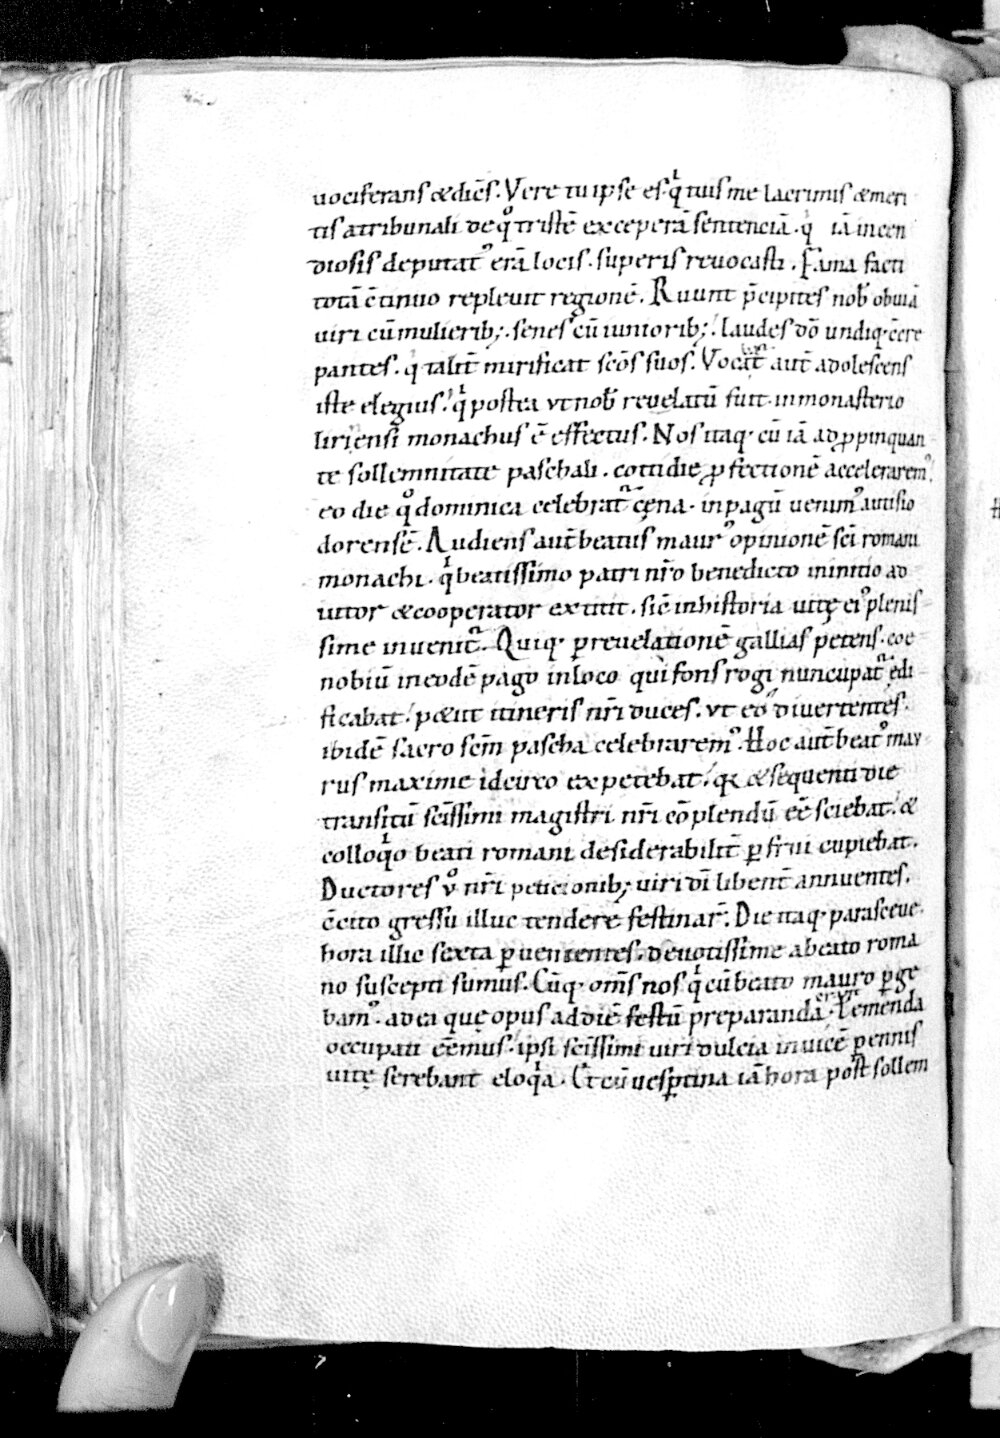 uociferans & dicẽs. Vere tu ipse es. qͥ tuis me lacrimis & meri
tis a tribunali de qͦ tristẽ exceperã sentenciã. qͥ iã incen
diosis deputatꝰ erã locis. superis reuocasti. Fama facti
totã cͣtinuo repleuit regionẽ. Ruunt p̃cipites nob̃ obuiã
uiri cũ mulierib; senes cũ iuniorib; laudes dõ undiq· cͣcre
pantes. qͥ talit̃ mirificat sc̃os suos. Vocabat̃ aut̃ adolescens
iste elegius. qͥ postea ut nob̃ reuelatũ fuit. in monasterio
liriensi monachus ẽ effectus. Nos itaq· cũ iã adꝓpinquan
te sollemnitate paschali. cottidie ꝓfectionẽ acceleraremꝰ.
eo die qͦ dominica celebrat᷑ cęna. in pagũ uenimꝰ autisio
dorensẽ. Audiens aut̃ beatus maurꝰ opinionẽ sc̃i romani
monachi. qͥ beatissimo patri nr̃o benedicto in initio ad
iutor & cooperator extitit. sic̃ in historia uitę eiꝰ plenis
sime inuenit᷑. Quiq· p̱ reuelationẽ gallias petens. coe
nobiũ in eodẽ pago in loco qui fons rogi nuncupat᷑ ędi
ficabat. p&iit itineris nr̃i duces. ut eo diuertentes.
ibidẽ sacro sc̃m pascha celebraremꝰ. Hoc aut̃ beatꝰ mau
rus maxime idcirco expetebat. qꝛ & sequenti die
transitũ sc̃issimi magistri nr̃i cõplendũ eẽ sciebat. &
colloqͥo beati romani desiderabilit̃ ꝑfrui cupiebat.
Ductores uͦ nr̃i peticionib; uiri dĩ libent̃ annuentes.
cͣcito gressu illuc tendere festinar̃. Die itaq· parasceue.
hora illic sexta ꝑuenientes. deuotissime a beato roma
no suscepti sumus. Cũq· om̃s nos qͥ cũ beato mauro ꝑge
bamꝰ. ad ea que opus ad diẽ festũ preparandã erant emenda
occupati eẽmus. ipsi sc̃issimi uiri dulcia inuicẽ pennis
uitę serebant eloqͥa. Et cũ uesꝑtina iã hora post sollem